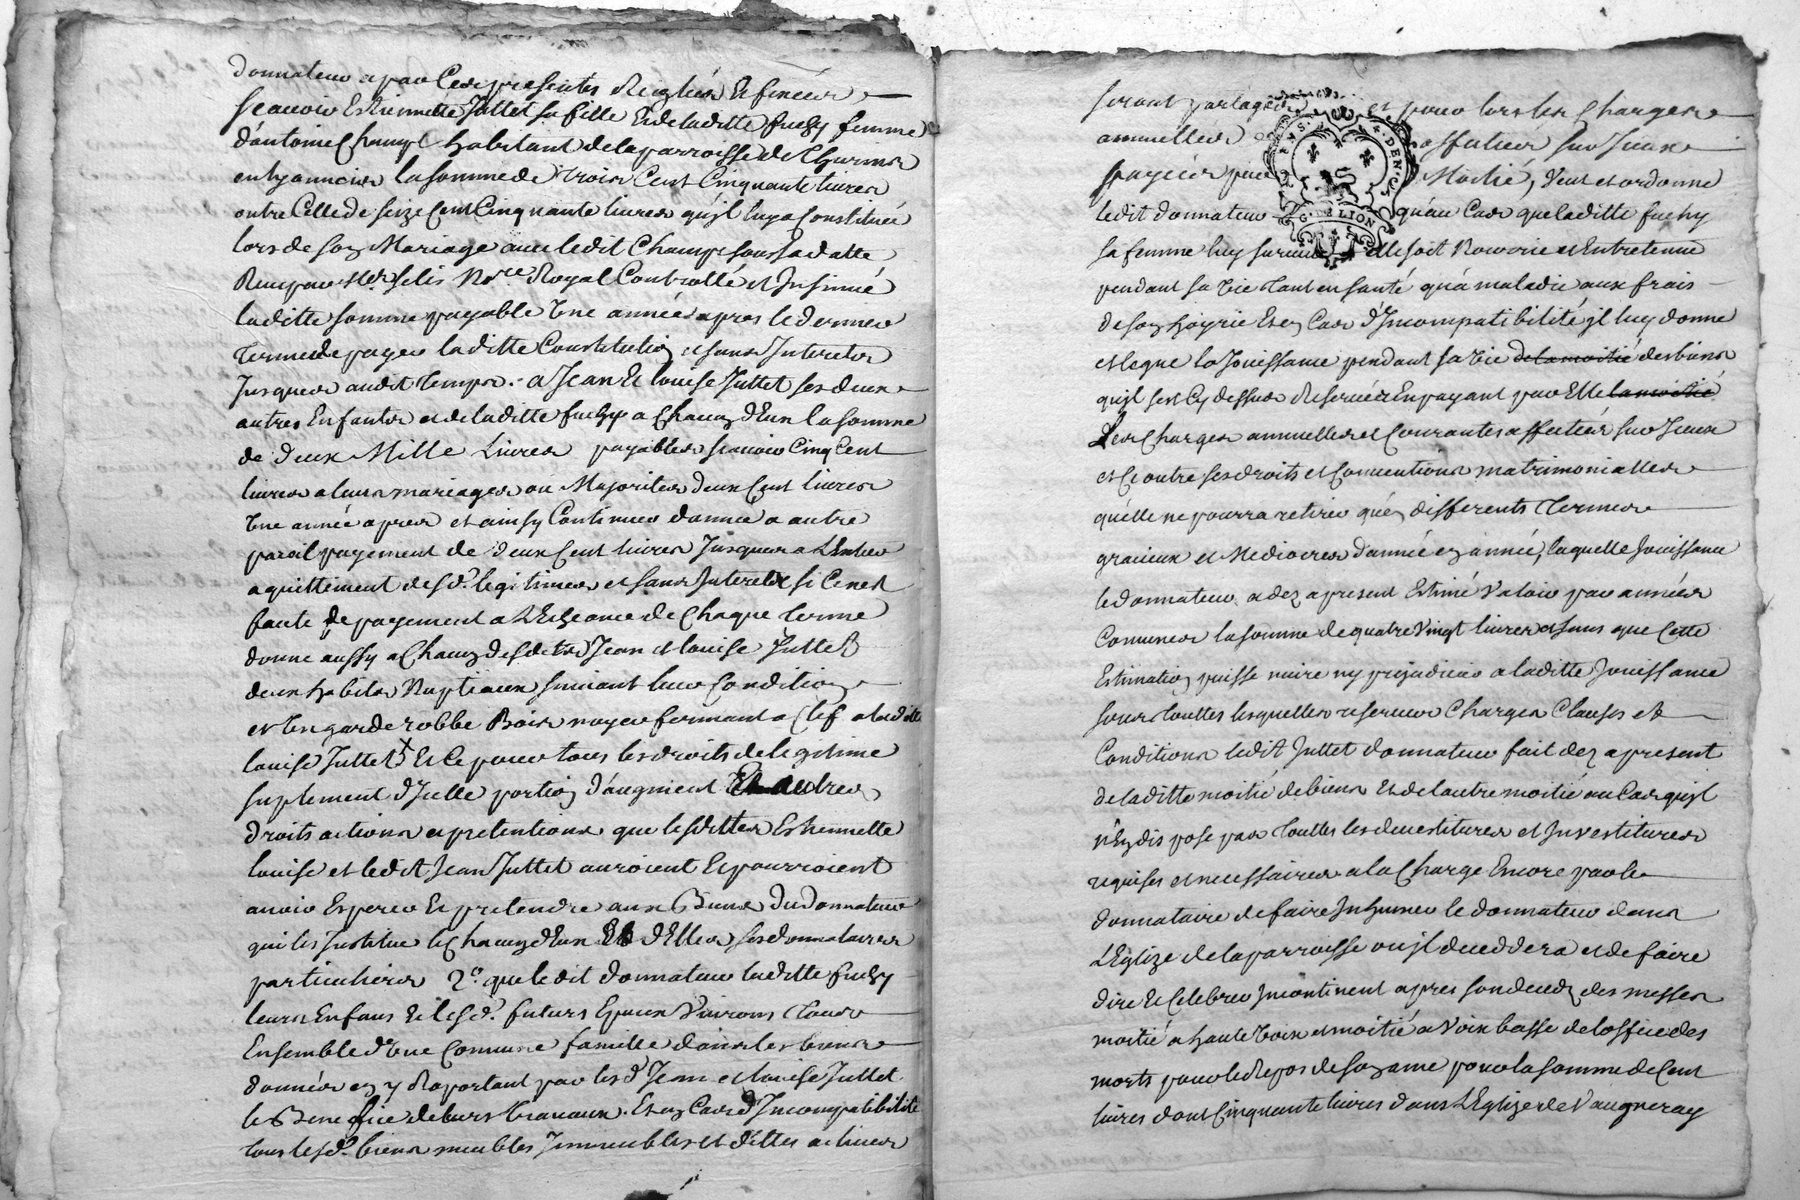 donnateur a par Ces presentes Reglées Et fixées
scauoir Estiennette Juttet sa fille Et de laditte fuchy femme
d'antoine Champ habitant de la parroisse de Thurins
en lyonnois la somme de trois Cent Cinquante liures
outre Celle de seize Cent Cinquante liures qu'jl luy a Constituée
lors de son Mariage auec ledit Champ sous sa datte
Receu par Mer Nore Royal Controllé et Insinué
laditte somme payable Une année apres le dernier
terme de payer laditte Constitution et sans Interets
Jusques audit temps. a Jean Et louise Juttet ses deux
autres Enfants et de laditte fuchy a Chacun d'Eux la somme
de deux Mille Liures payables scauoir Cinq Cent
liures a leurs mariages ou Majorités deux Cent liures
Une année apres et ainsy Continuer d'année a autre
pareil payement de deux Cent liures Jusques a L'Entier
aquittement desd. legitimes et sans Interets si Ce n'est
faute de payement a L'Echeance de Chaque terme
donne aussy a Chacun desdits Jean et louise Juttet
deux habits Nuptiaux suiuant leur Condition
et Un garderobbe Bois noyer fermant a Clef a laditte
louise Juttet Et Ce pour tous les droits de legitime
suplement d'Jcelle portion d'augment Et Autres
droits actions et pretentions que lesdittes Estiennette
louise et ledit Jean Juttet auroient Et pourroient
auoir Esperer Et pretendre aux Biens du donnateur
qui les Institue Chacun d'Eux Et d'Elles ses donnataires
particuliers 2o. que ledit donnateur laditte fuchy
leurs Enfans Et lesd. futurs Epoux Viuront tous
Ensemble d'Une Commune famille dans les biens
donnés en y Raportant par lesd. Jean et louise Juttet
le Benefice de leurs trauaux. Et en Cas d'Incompatibilité
tous lesd. biens meubles Jmmeubles et dettes actiues
seront partagés et pour lors les Charges
annuelles affectées sur Jceux
payées par Moitié, Veut et ordonne
ledit donnateur qu'au Cas que laditte fuchy
sa femme luy suruiue elle soit Nourrie et Entretenue
pendant sa Vie tant en santé qu'a maladie aux frais
de son hoyrie Et en Cas d'Jncompatibilité jl luy donne
et legue la Jouissance pendant sa Vie de la moitié des biens
qu'jl s'est Cy dessus Reserués En payant par Elle la moitié
Les Charges annuelles et Courantes affectées sur Jceux
et Ce outre ses droits et Conuentions matrimonialles
qu'elle ne pourra retirer qu'en differents termes
gracieux et Mediocres d'année en année, laquelle Jouissance
ledonnateur a dez apresent Estimé Valoir par années
Comunes la somme de quatre Vingt liures et sans que Cette
Estimation puisse nuire ny prejudicier a laditte Jouissance
sous touttes lesquelles reserues Charges Clauses et
Conditions ledit Juttet donnateur fait dez apresent
de laditte moitié de biens Et de l'autre moitié au Cas qu'jl
n'En dispose pas touttes les deuestitures et Jnvestitures
requises et necessaires a la Charge Encore par le
donnataire de faire Jnhumer le donnateur dans
L'Eglize de la parroisse ou jl deceddera et de faire
dire Et Celebrer Jncontinent apres son decedz des messes
moitié a haute Voix et moitié a Voix basse de l'office des
morts pour le Repos de son ame pour la somme de Cent
liures dont Cinquante liures dans L'Eglize de Vaugneray
G. DE LION